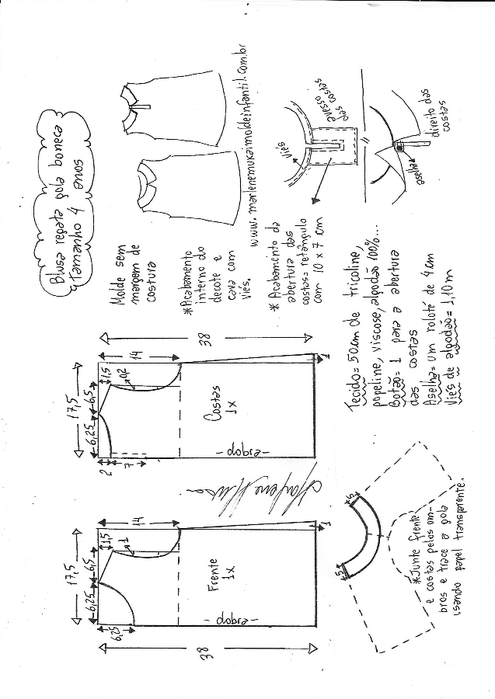 Blusa regata gola boneca
Tamanho 4 anos
Molde sem
margem de
costura
*Acabamento
interno do
decote e
cava com
viés.
www.marlenemukaimoldeinfantil.com.br
* Acabamento da
abertura das
costas= retângulo
com 10 x 7 cm
viés
avesso
das costas
aselha
direito das
costas
38
14
17,5
6,25
6,5
1,5
0,2
2
7
Costas
1x
-dobra-
1
Tecido= 50cm de tricoline,
popeline, viscose, algodão 100%...
Botão= 1 para a abertura
das costas
Aselha= um roloté de 4 cm
Viés de algodão= 1,10m
14
17,5
6,25
6,5
1,5
1
6,25
Frente
1x
-dobra-
1
38
5
5
*Junte frente
e costas pelos om-
bros e trace a gola
usando papel transparente.